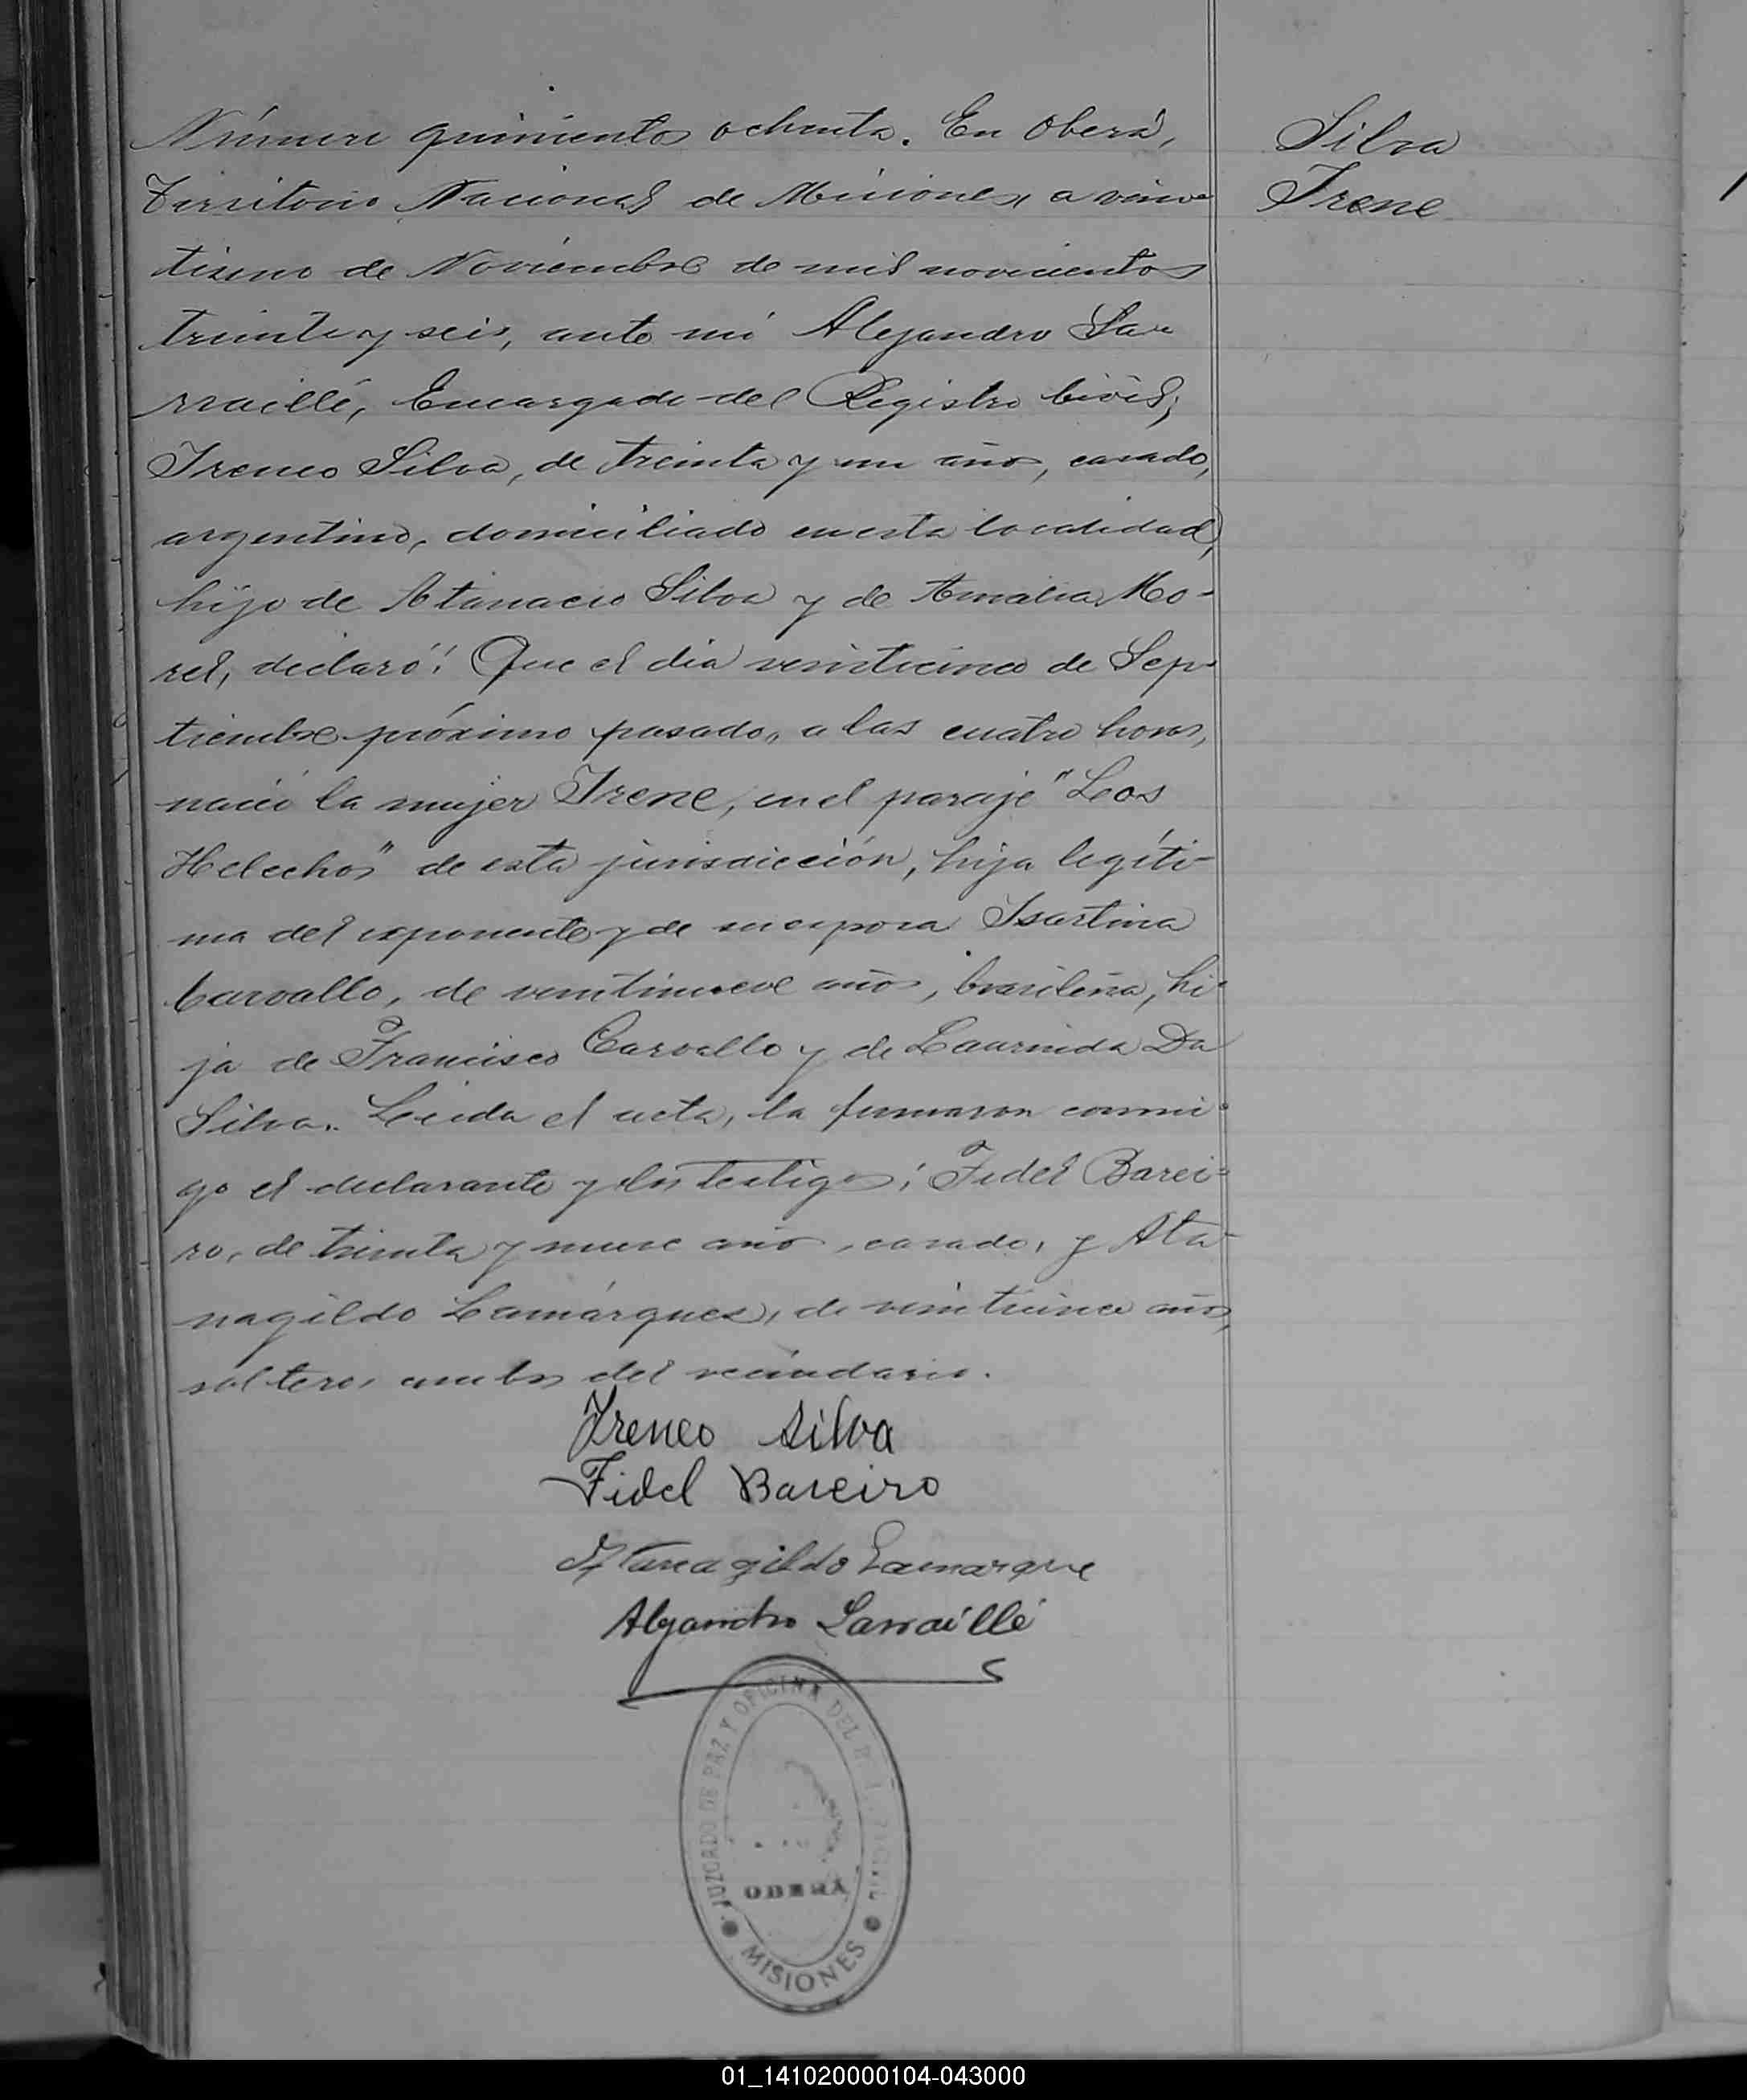 Número quinientos ochenta. En Oberá,
Territorio Nacional de Misiones, a vein-
tiuno de Noviembre de mil novecientos
treinta y seis, ante mí Alejandro Sa-
rraillé, Encargado del Registro Civil,
Ireneo Silva, de treinta y un años, casado,
argentino, domiciliado en esta localidad,
hijo de Atanacio Silva y de Amalia Mo-
rel, declaró: Que el día veinticinco de Sep-
tiembre próximo pasado, a las cuatro horas,
nació la mujer Irene, en el paraje "Los
Helechos" de esta jurisdicción, hija legíti-
ma del exponente y de su esposa Isartina
Carvallo, de veintinueve años, brasileña, hi-
ja de Francisco Carvallo y de Laurinda Da
Silva. Leída el acta, la firmaron conmi-
go el declarante y los testigos: Fidel Barei-
ro, de treinta y nueve años, casado, y Ata-
nagildo Lamárquez, de veinticinco años,
soltero, ambos del vecindario.
Silva
Irene
Ireneo Silva
Fidel Bareiro
Atanagildo Lamarque
Alejandro Sarraillé
JUZGADO DE PAZ Y OFICINA DEL
OBERÁ
MISIONES
01_141020000104-043000